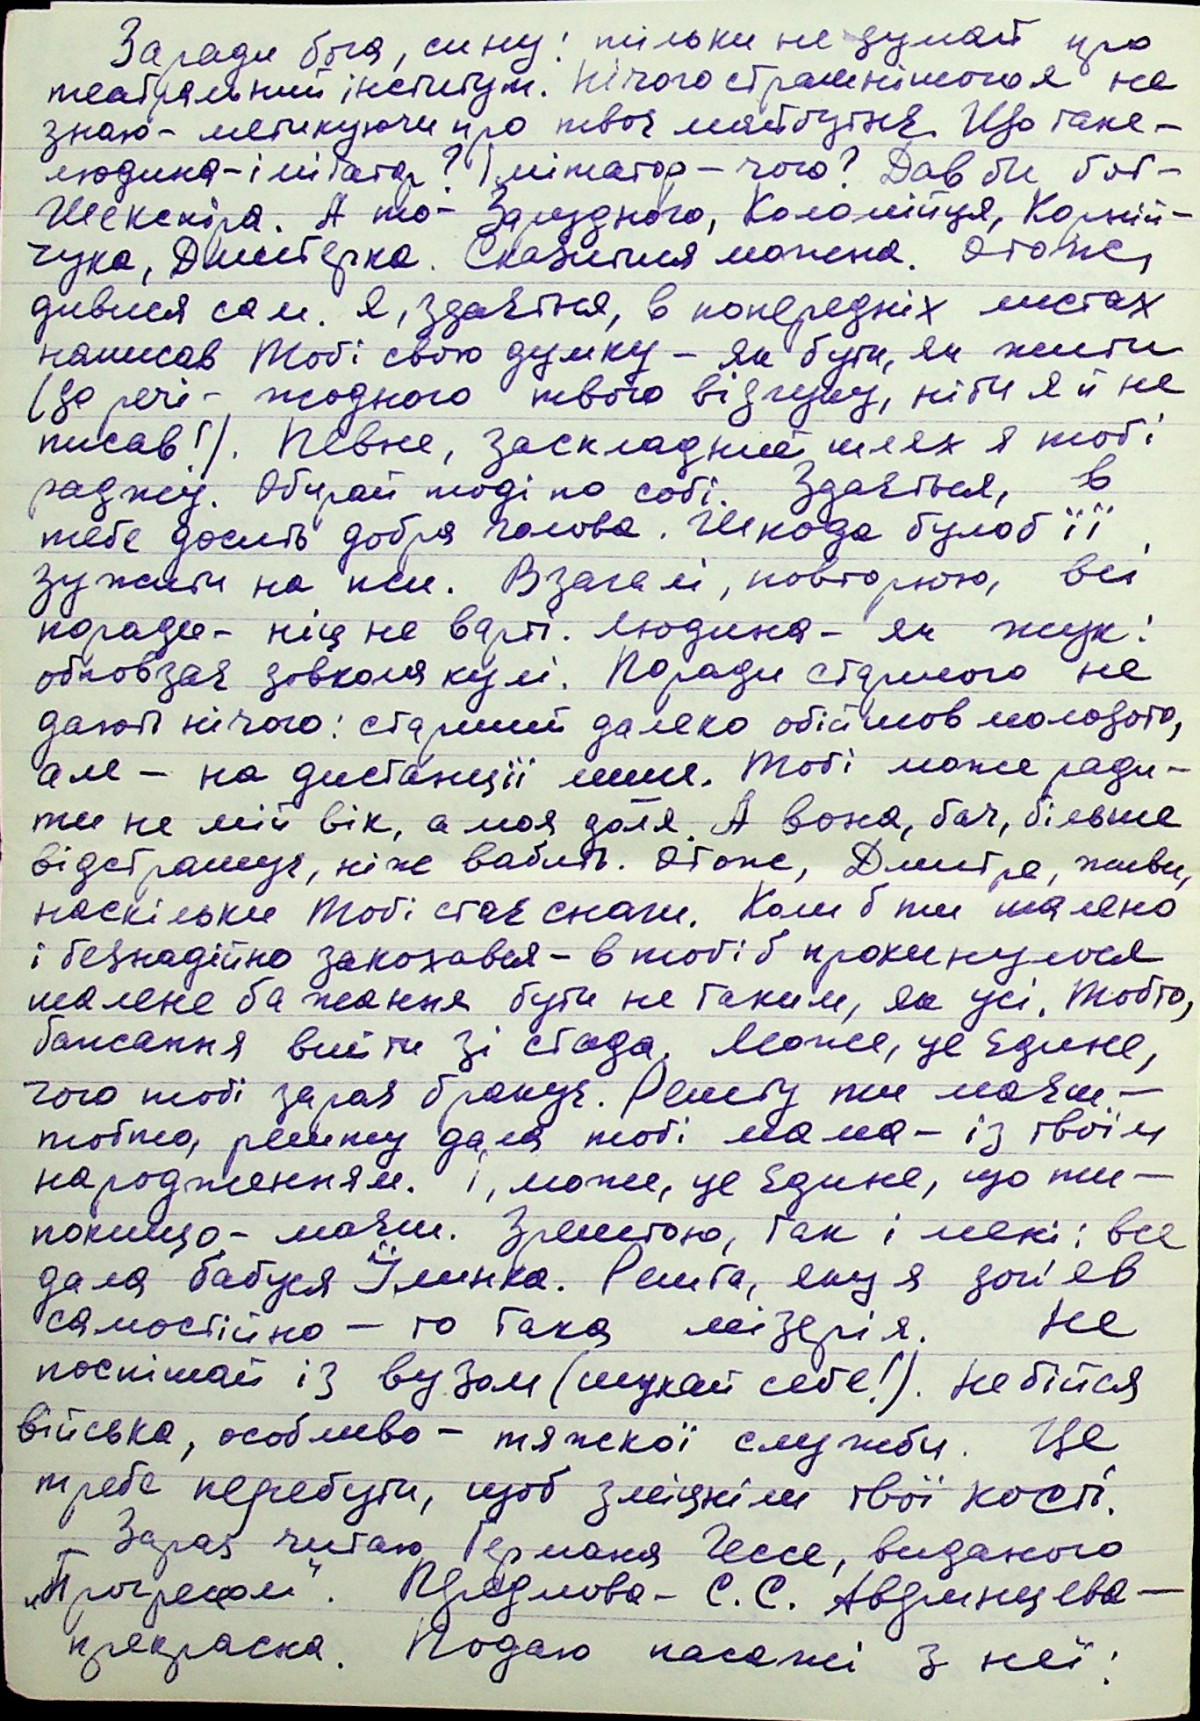 Заради бога, сину: тільки не думай про
театральний інститут. Нічого страшнішого я не
знаю – метикуючи про твоє майбутнє. Що таке –
людина – імітатор? Імітатор – чого? Дав би бог –
Шекспіра. А то – Зарудного, Коломійця, Корній-
чука, Дмитерка. Сказитися можна. Отож,
дивися сам. Я, здається, в попередніх листах
написав Тобі свою думку – як бути, як жити
(до речі – жодного твого відгуку, ніби я й не
писав!). Певне, заскладний шлях я тобі
раджу. Обирай тоді по собі. Здається, в
тебе досить добра голова. Шкода було б її
зужити на пси. Взагалі, повторюю, всі
поради – ніц не варті. Людина – як жук:
обповзає довкола кулі. Поради старшого не
дають нічого: старший далеко обійшов молодого,
але – на дистанції лише. Тобі може ради-
ти не мій вік, а моя доля. А вона, бач, більше
відстрашує, ніж вабить. Отож, Дмитре, живи,
наскільки Тобі стає снаги. Коли б ти шалено
і безнадійно закохався – в тобі б прокинулося
шалене бажання бути не таким, як усі. Тобто,
бажання вийти зі стада. Може, це єдине,
чого тобі зараз бракує. Решту ти маєш –
тобто, решту дала тобі мама – із твоїм
народженням. І, може, це єдине, що ти –
покищо – маєш. Зрештою, так і мені: все
дала бабуся Їлинка. Решта, яку я здобув
самостійно – то така мізерія. Не
поспішай із вузом (шукай себе!). Не бійся
війська, особливо – тяжкої служби. Це
треба перебути, щоб зміцніли твої кості.
– Зараз читаю Германа Гессе, виданого
„Прогресом". Передмова – С.С. Аверинцева –
прекрасна. Подаю пасажі з неї: